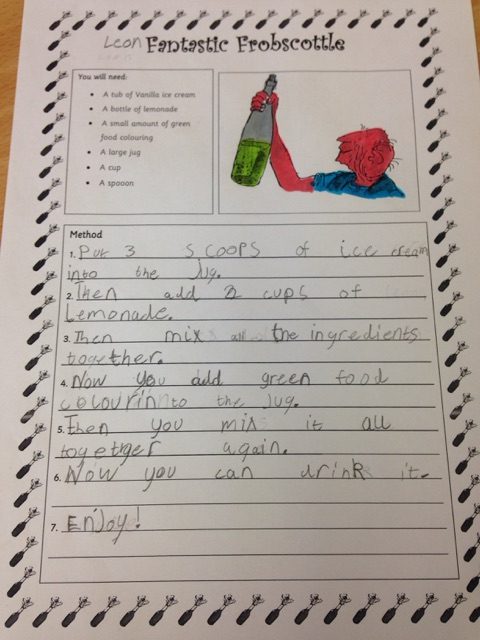 Leon Fantastic Frobscottle
You will need:
A tub of Vanilla ice cream
A bottle of lemonade
A small amount of green
food colouring
A large jug
A cup
A spooon
Method
1. Put 3 scoops of ice cream
into the jug.
2. Then add 2 cups of
Lemonade.
3. Then mix all the ingredients
together.
4. Now you add green food
colourin to the jug.
5. Then you mix it all
togetrger again.
6. Now you can drink it.
7. Enjoy!